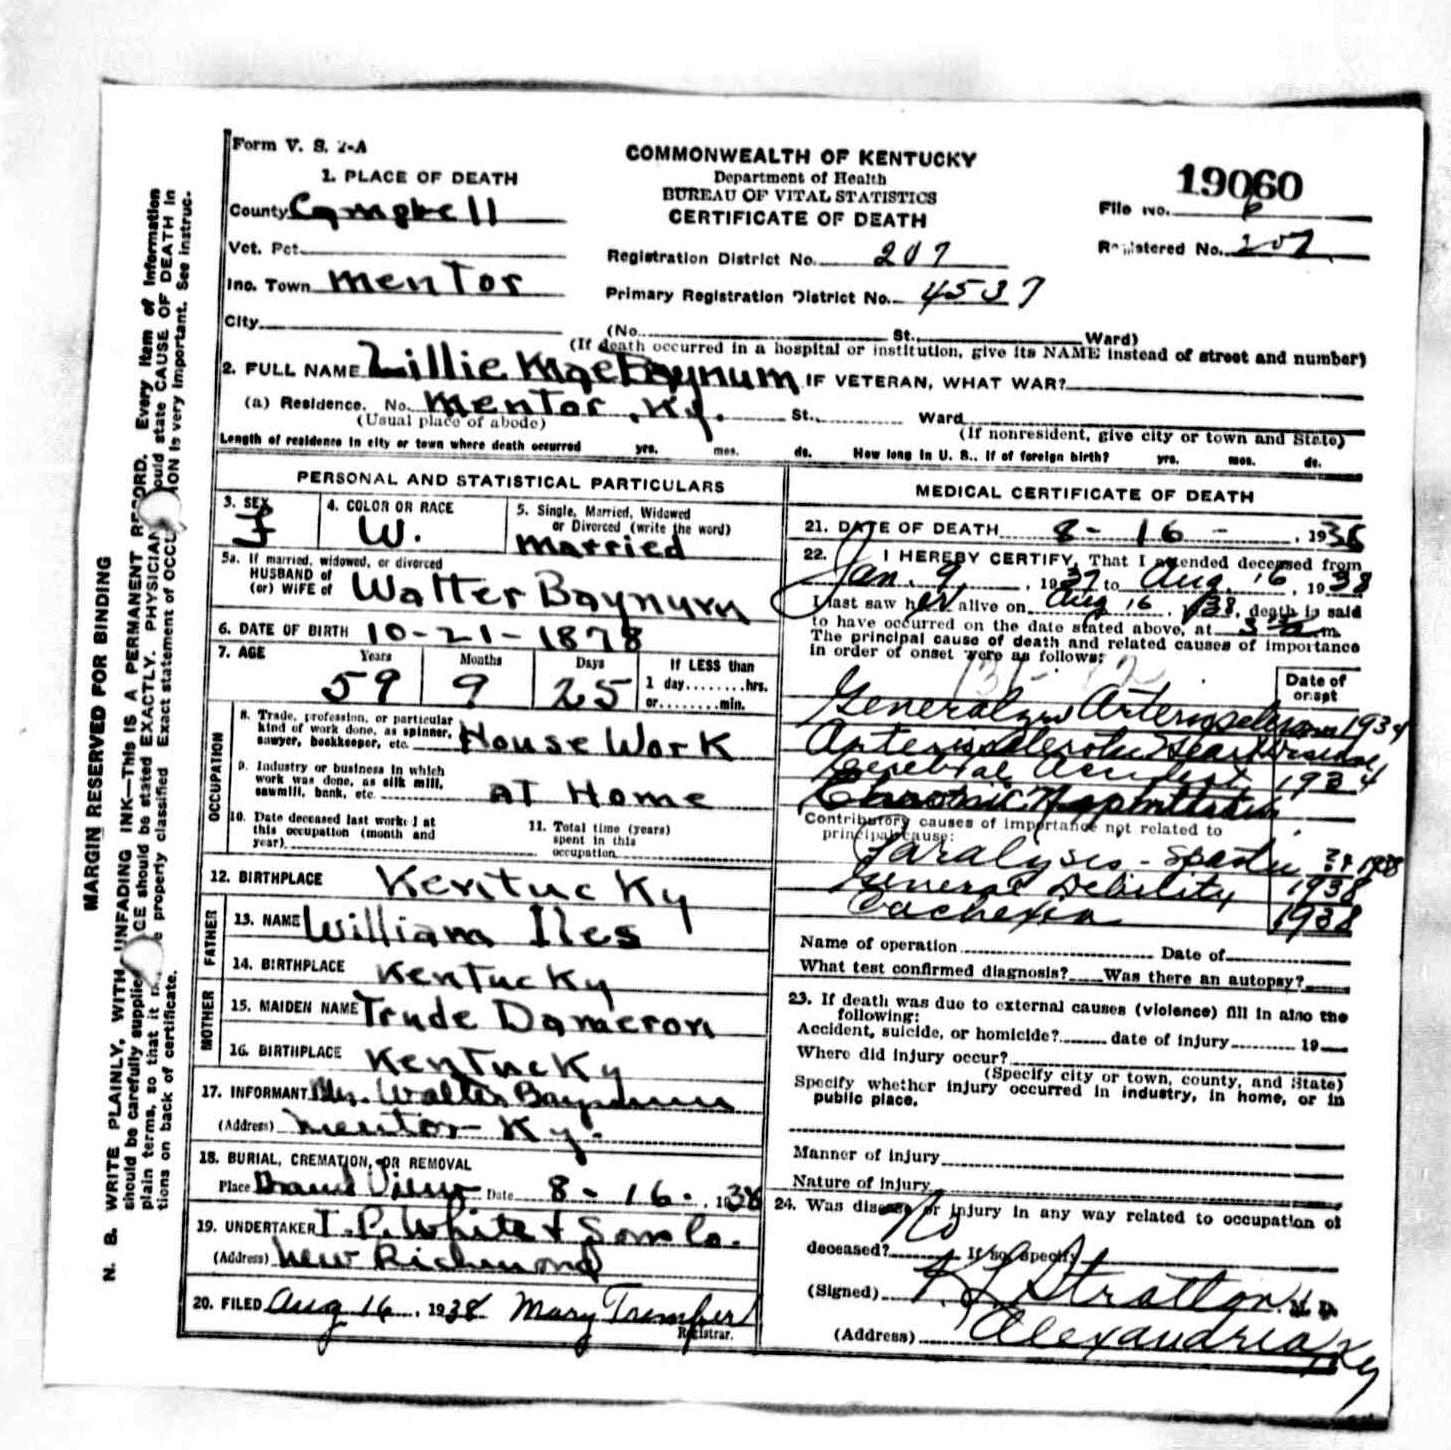 Form V. S. 2-A
COMMONWEALTH OF KENTUCKY
Department of Health
BUREAU OF VITAL STATISTICS
CERTIFICATE OF DEATH
19060
File No. 6
Registered No. 207
1. PLACE OF DEATH
County Campbell
Vot. Pct.
Inc. Town Mentor
City
Registration District No. 207
Primary Registration District No. 4537
(No. St., Ward)
(If death occurred in a hospital or institution, give its NAME instead of street and number)
2. FULL NAME Lillie Mae Baynum IF VETERAN, WHAT WAR?
(a) Residence. No. Mentor, Ky. St., Ward
(Usual place of abode) (If nonresident, give city or town and State)
Length of residence in city or town where death occurred yrs. mos. ds. How long in U. S., if of foreign birth? yrs. mos. ds.
PERSONAL AND STATISTICAL PARTICULARS
3. SEX F
4. COLOR OR RACE W.
5. Single, Married, Widowed
or Divorced (write the word)
Married
5a. If married, widowed, or divorced
HUSBAND of
(or) WIFE of Walter Baynum
6. DATE OF BIRTH 10-21-1878
7. AGE Years Months Days If LESS than
59 9 25 1 day........hrs.
or........min.
OCCUPATION
8. Trade, profession, or particular
kind of work done, as spinner,
sawyer, bookkeeper, etc. House Work
9. Industry or business in which
work was done, as silk mill,
sawmill, bank, etc. At Home
10. Date deceased last worked at
this occupation (month and
year)
11. Total time (years)
spent in this
occupation
12. BIRTHPLACE Kentucky
FATHER
13. NAME William Iles
14. BIRTHPLACE Kentucky
MOTHER
15. MAIDEN NAME Trude Dameron
16. BIRTHPLACE Kentucky
17. INFORMANT Walter Baynum
(Address) Mentor Ky.
18. BURIAL, CREMATION, OR REMOVAL
Place Grand View Date 8-16-, 1938
19. UNDERTAKER T. P. White & Sons Co.
(Address) New Richmond
20. FILED Aug 16, 1938 Mary
Registrar.
MEDICAL CERTIFICATE OF DEATH
21. DATE OF DEATH 8-16-, 1938
22. I HEREBY CERTIFY, That I attended deceased from
Jan. 9, 1937 to Aug. 16, 1938
I last saw her alive on Aug 16, 1938, death is said
to have occurred on the date stated above, at m.
The principal cause of death and related causes of importance
in order of onset were as follows:
Date of
onset
Arteriosclerosis 1934
Heart Disease
Cerebral Accident 1934
Chronic
Contributory causes of importance not related to
principal cause:
Paralysis - Spastic 1938
General Debility 1938
Cachexia 1938
Name of operation Date of
What test confirmed diagnosis? Was there an autopsy?
23. If death was due to external causes (violence) fill in also the
following:
Accident, suicide, or homicide? date of injury 19
Where did injury occur?
(Specify city or town, county, and State)
Specify whether injury occurred in industry, in home, or in
public place.
Manner of injury
Nature of injury
24. Was disease or injury in any way related to occupation of
deceased? No If so, specify
(Signed) Stratton M. D.
(Address) Alexandria, Ky
MARGIN RESERVED FOR BINDING
N. B. WRITE PLAINLY, WITH UNFADING INK—THIS IS A PERMANENT RECORD. Every item of information
should be carefully supplied. AGE should be stated EXACTLY. PHYSICIAN should state CAUSE OF DEATH in
plain terms, so that it properly classified. Exact statement of OCCUPATION is very important. See instruc-
tions on back of certificate.